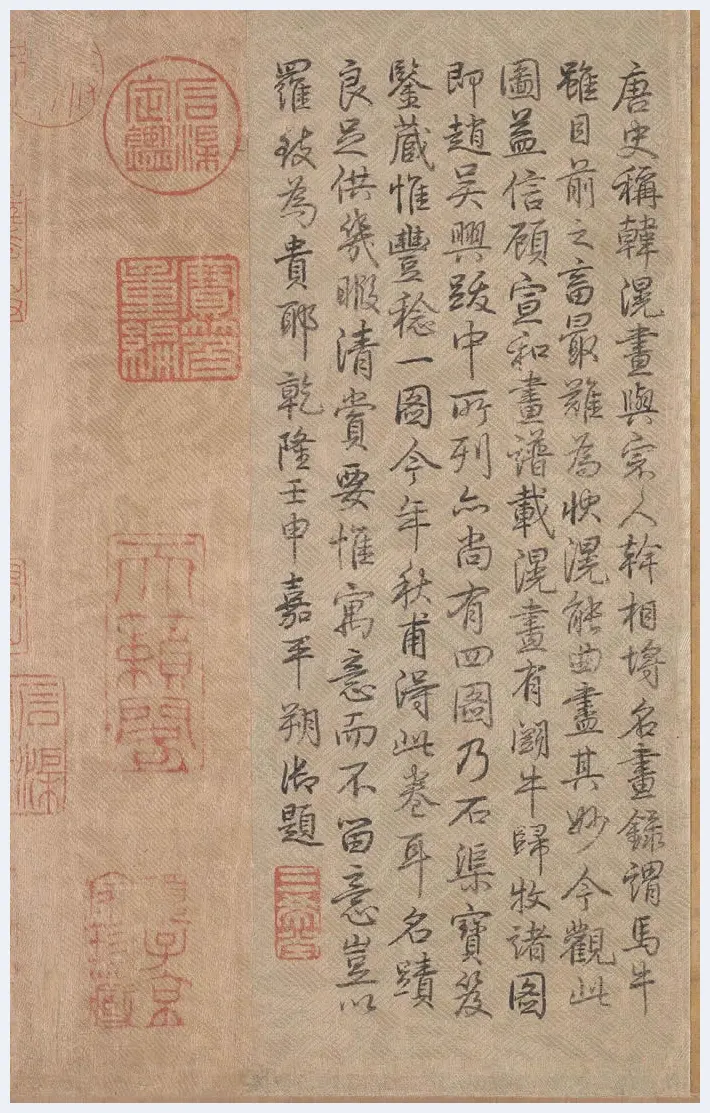 唐史稱韓滉畫與宗人幹相埒名畫錄謂馬牛
雖目前之畜最難為狀滉能曲盡其妙今觀此
圖益信顧宣和畫譜載滉畫有鬭牛歸牧諸圖
即趙吳興跋中所列亦尚有四圖乃石渠寶笈
鑒藏惟豐稔一圖今年秋甫得此卷耳名蹟
良足供幾暇清賞要惟寓意而不留意豈以
羅致為貴耶乾隆壬申嘉平朔御題
三希堂
石渠定鑑
寶笈重編
天籟閣
石渠
子京